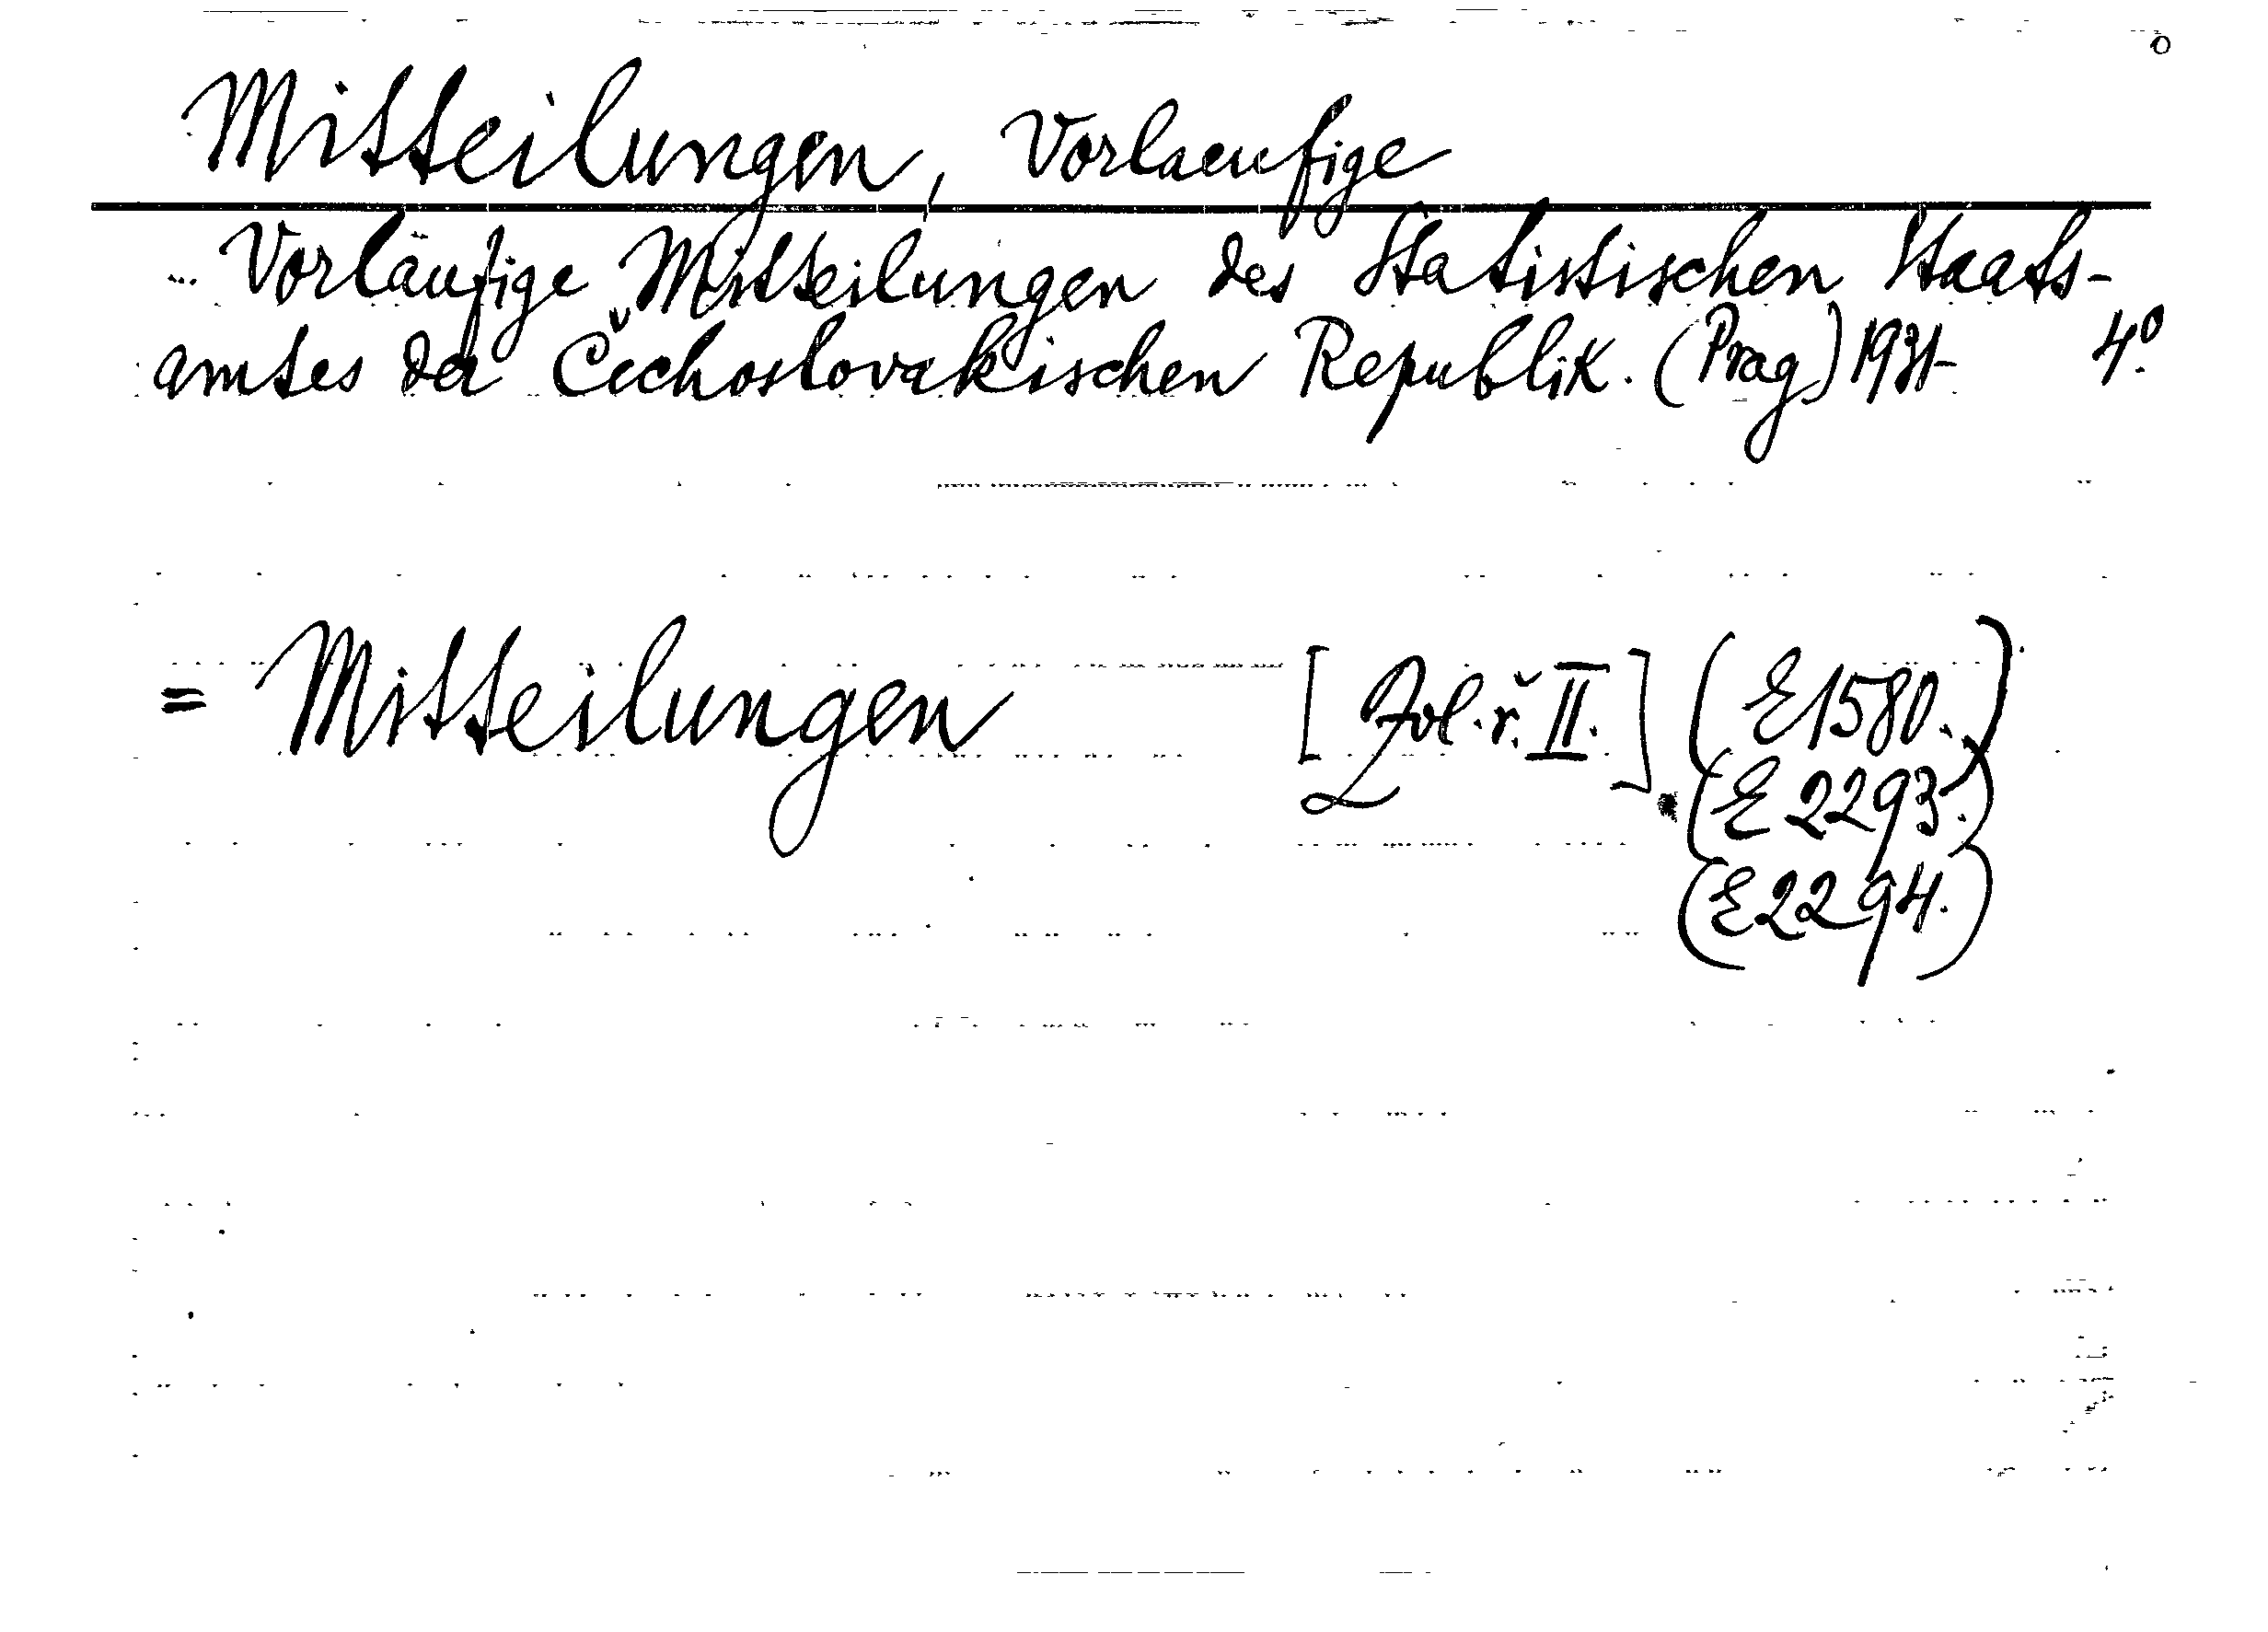 Mitteilungen, Vorlaeufige
Vorläufige Mitteilungen des Statistischen Staats-
amtes der Čechoslovakischen Republik. (Prag) 1931- 4°.
= Mitteilungen [Zvl. ř. II.] (E 1580.)
(E 2293.)
(E 2294.)